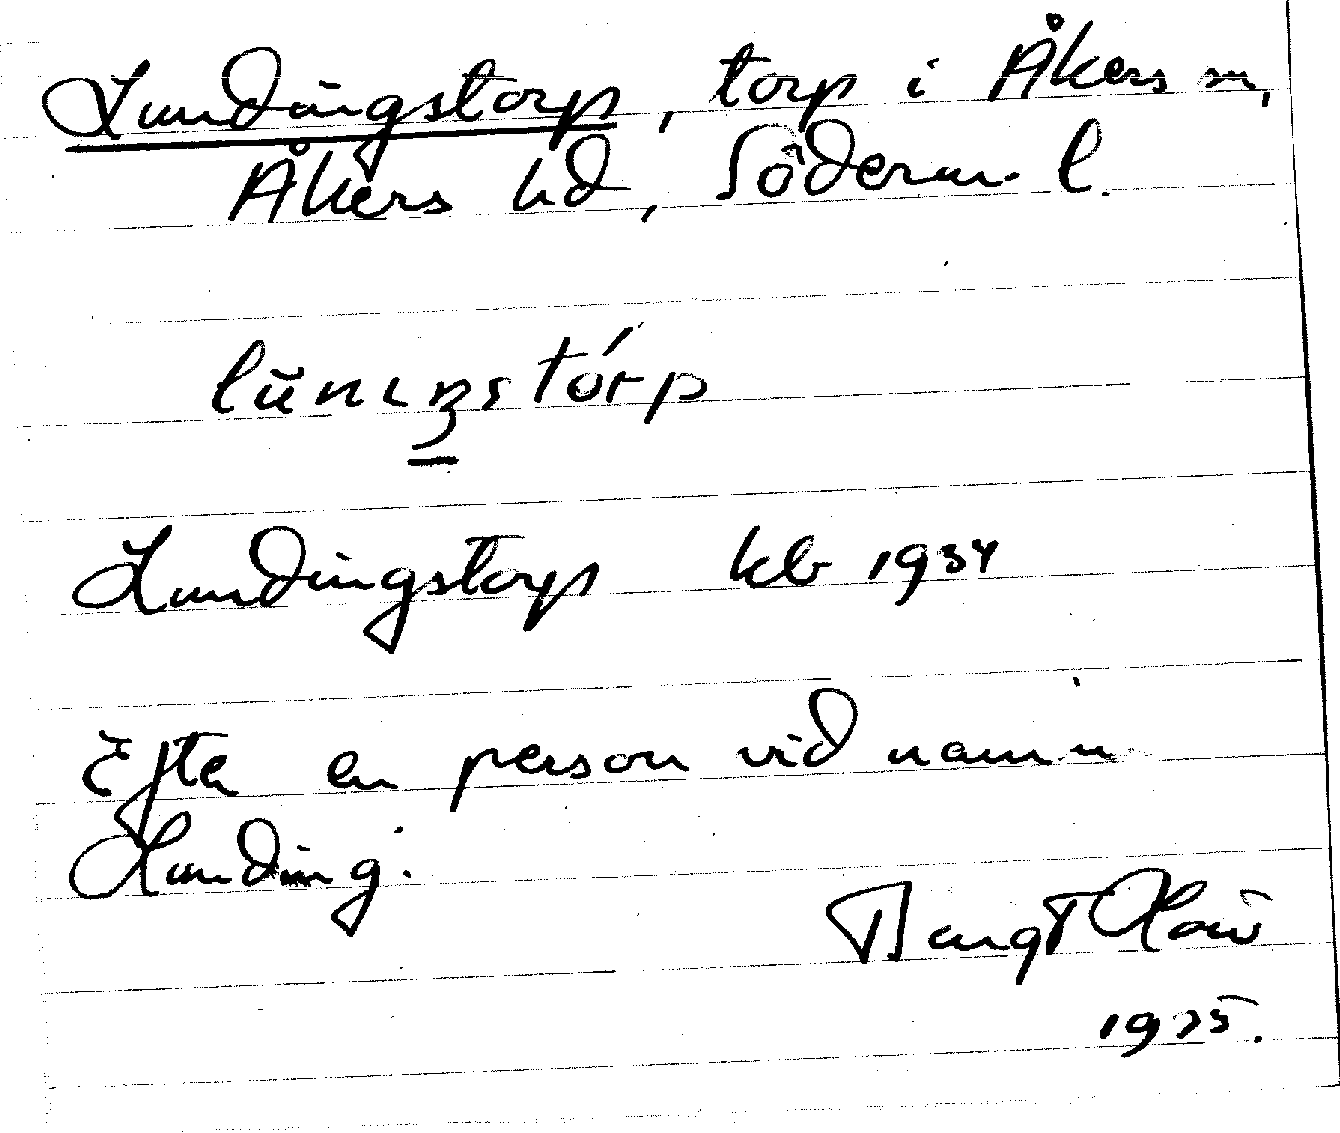 Lundingstorp, torp i Åkers sn,
Åkers hd, Söderm. l.
Lundingstorp kb 1934
Efter en person vid namn
Lunding.
Bengt